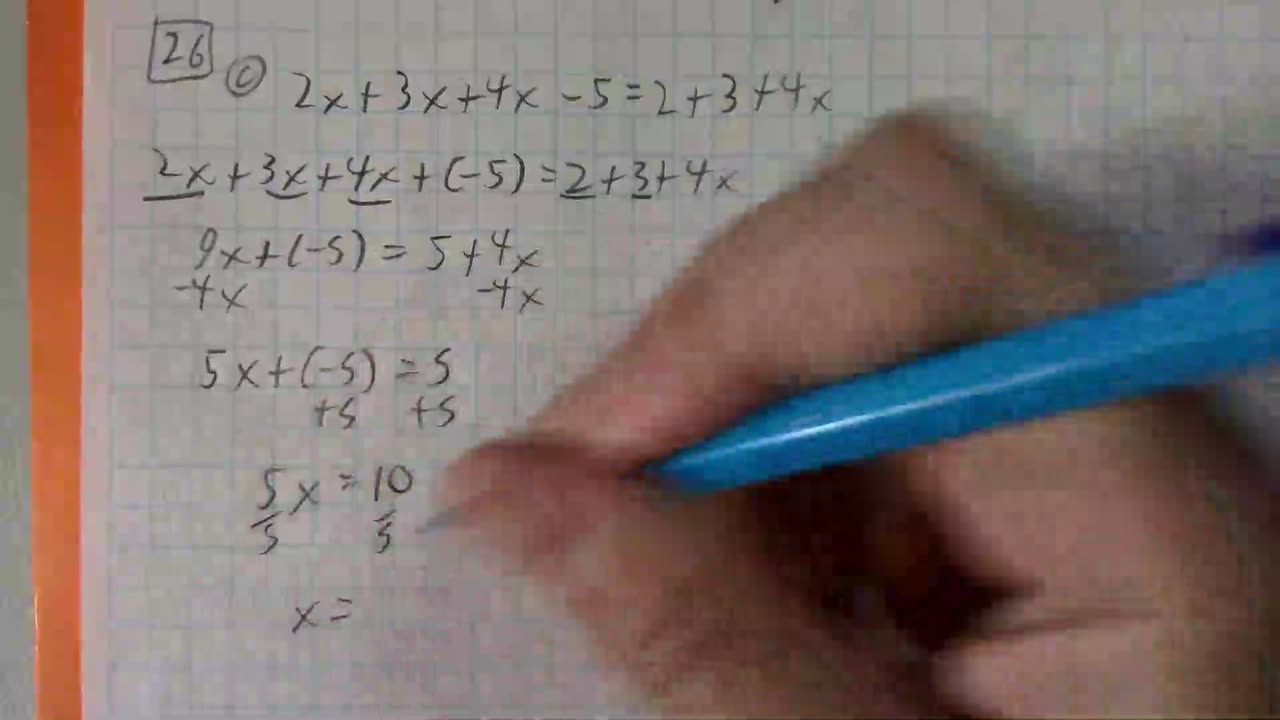 26 c 2x+3x+4x-5=2+3+4x
2x+3x+4x+(-5)=2+3+4x
9x+(-5)=5+4x
-4x -4x
5x+(-5)=5
+5 +5
5x=10
5 5
x=